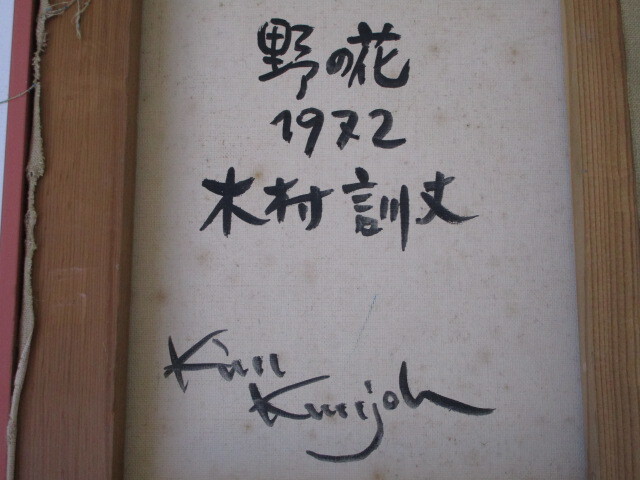 野の花
1972
木村訓丈
Kim
Kunjoh